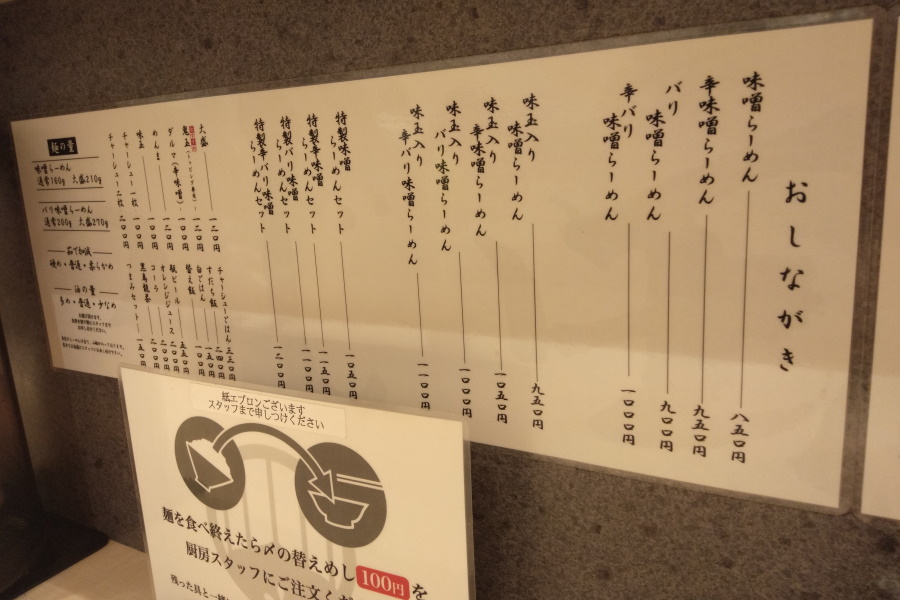 おしながき
味噌らーめん 八五〇円
辛味噌らーめん 九五〇円
バリ味噌らーめん 九〇〇円
辛バリ味噌らーめん 一〇〇〇円
味玉入り味噌らーめん 九五〇円
味玉入り辛味噌らーめん 一〇五〇円
味玉入りバリ味噌らーめん 一〇〇〇円
味玉入り辛バリ味噌らーめん 一一〇〇円
特製味噌らーめんセット 一〇五〇円
特製辛味噌らーめんセット 一一五〇円
特製バリ味噌らーめんセット 一一〇〇円
特製辛バリ味噌らーめんセット 一二〇
大盛 一〇〇円
鬼玉
ダルマ(辛味噌) 一〇〇円
めんま 一〇〇円
味玉 一〇〇円
チャーシュー一枚 一〇〇円
チャーシュー二枚 二〇〇円
チャーシューごはん 三三〇円
すだち飯
白ごはん
替え飯 一〇〇円
瓶ビール
オレンジジュース 二〇〇円
コーラ 二〇〇円
黒烏龍茶
つまみセット
麺の量
味噌らーめん
通常160g 大盛210g
バリ味噌らーめん
通常200g 大盛270g
茹で加減
硬め・普通・柔らかめ
油の量
多め・普通・少なめ
紙エプロンございます
スタッフまで申しつけください
麺を食べ終えたら〆の替えめし100円を
厨房スタッフにご注文くだ
残った具と一緒